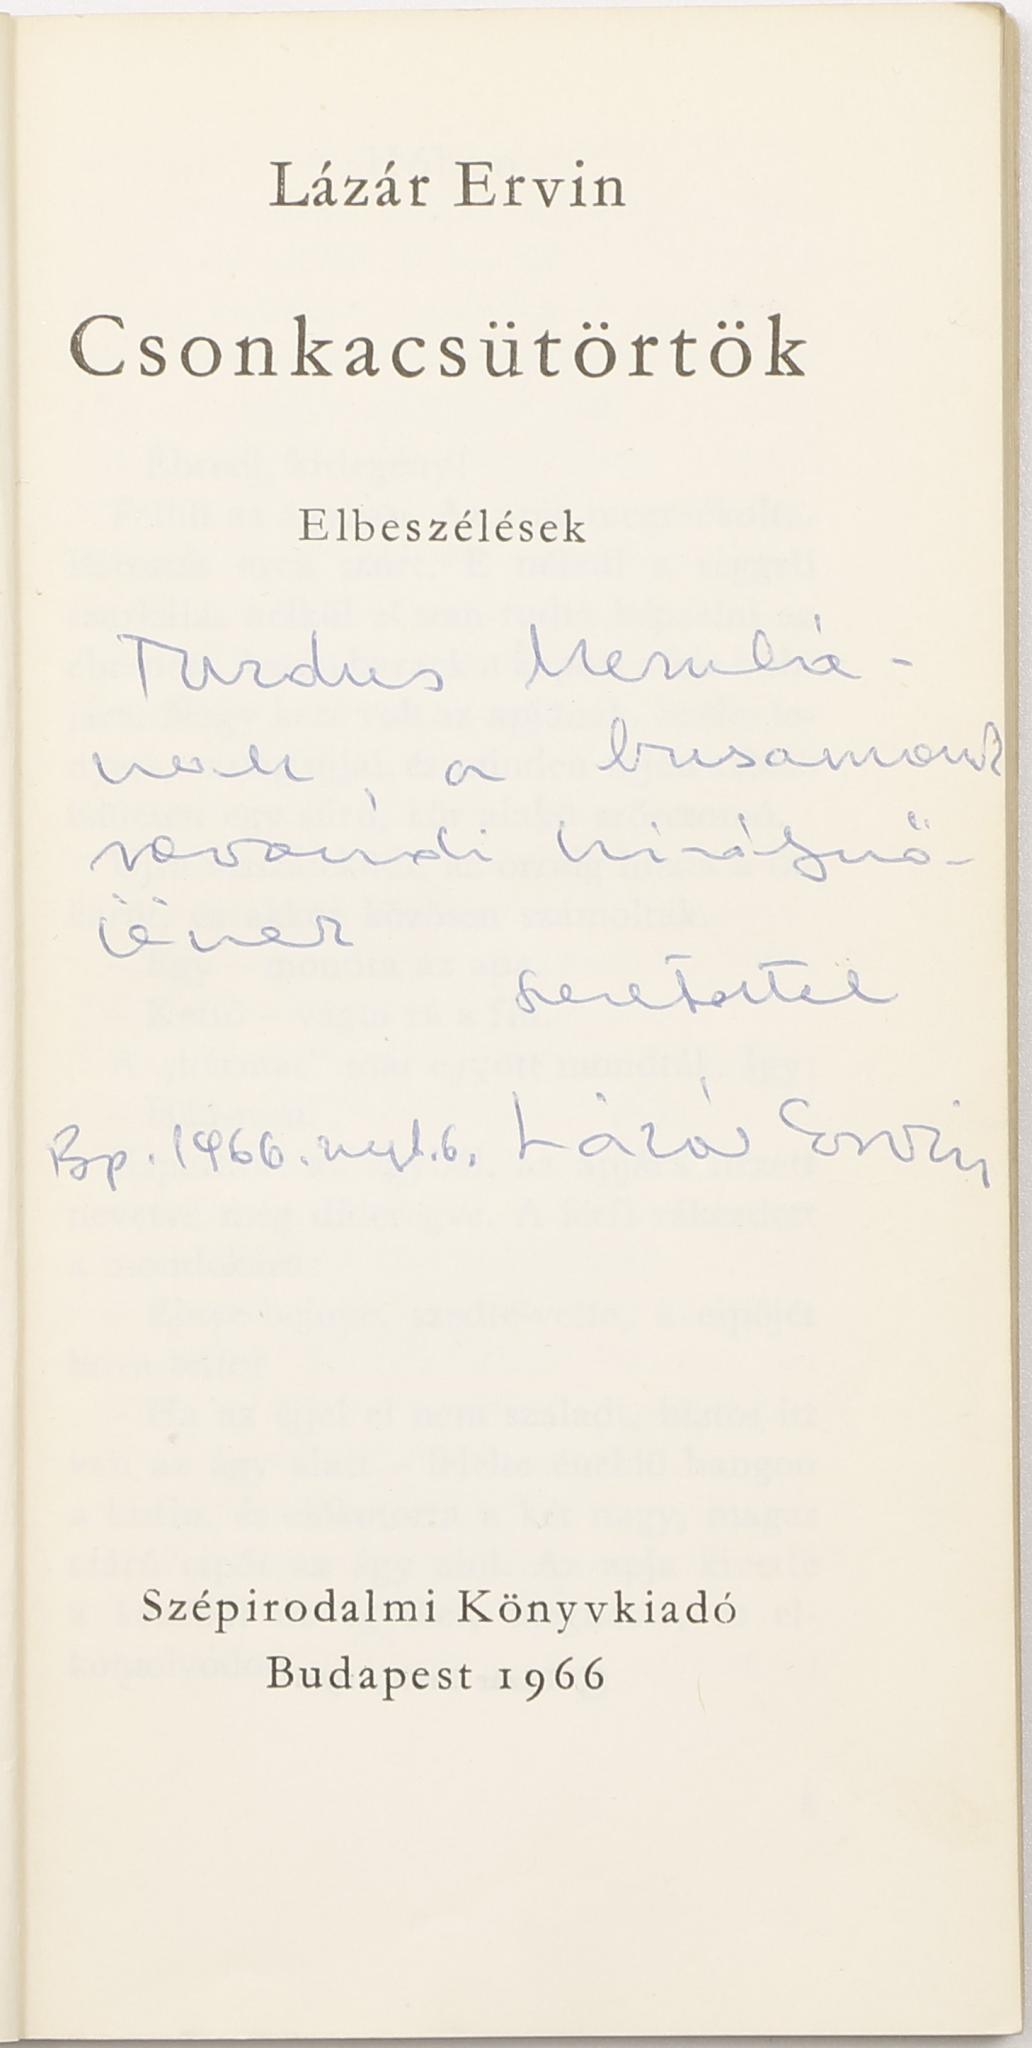 Lázár Ervin
Csonkacsütörtök
Elbeszélések
Turdus Meruliá-
nak a busamant
ravandi királynő-
jének
szeretettel
Bp. 1966. nyt. 6. Lázár Ervin
Szépirodalmi Könyvkiadó
Budapest 1966